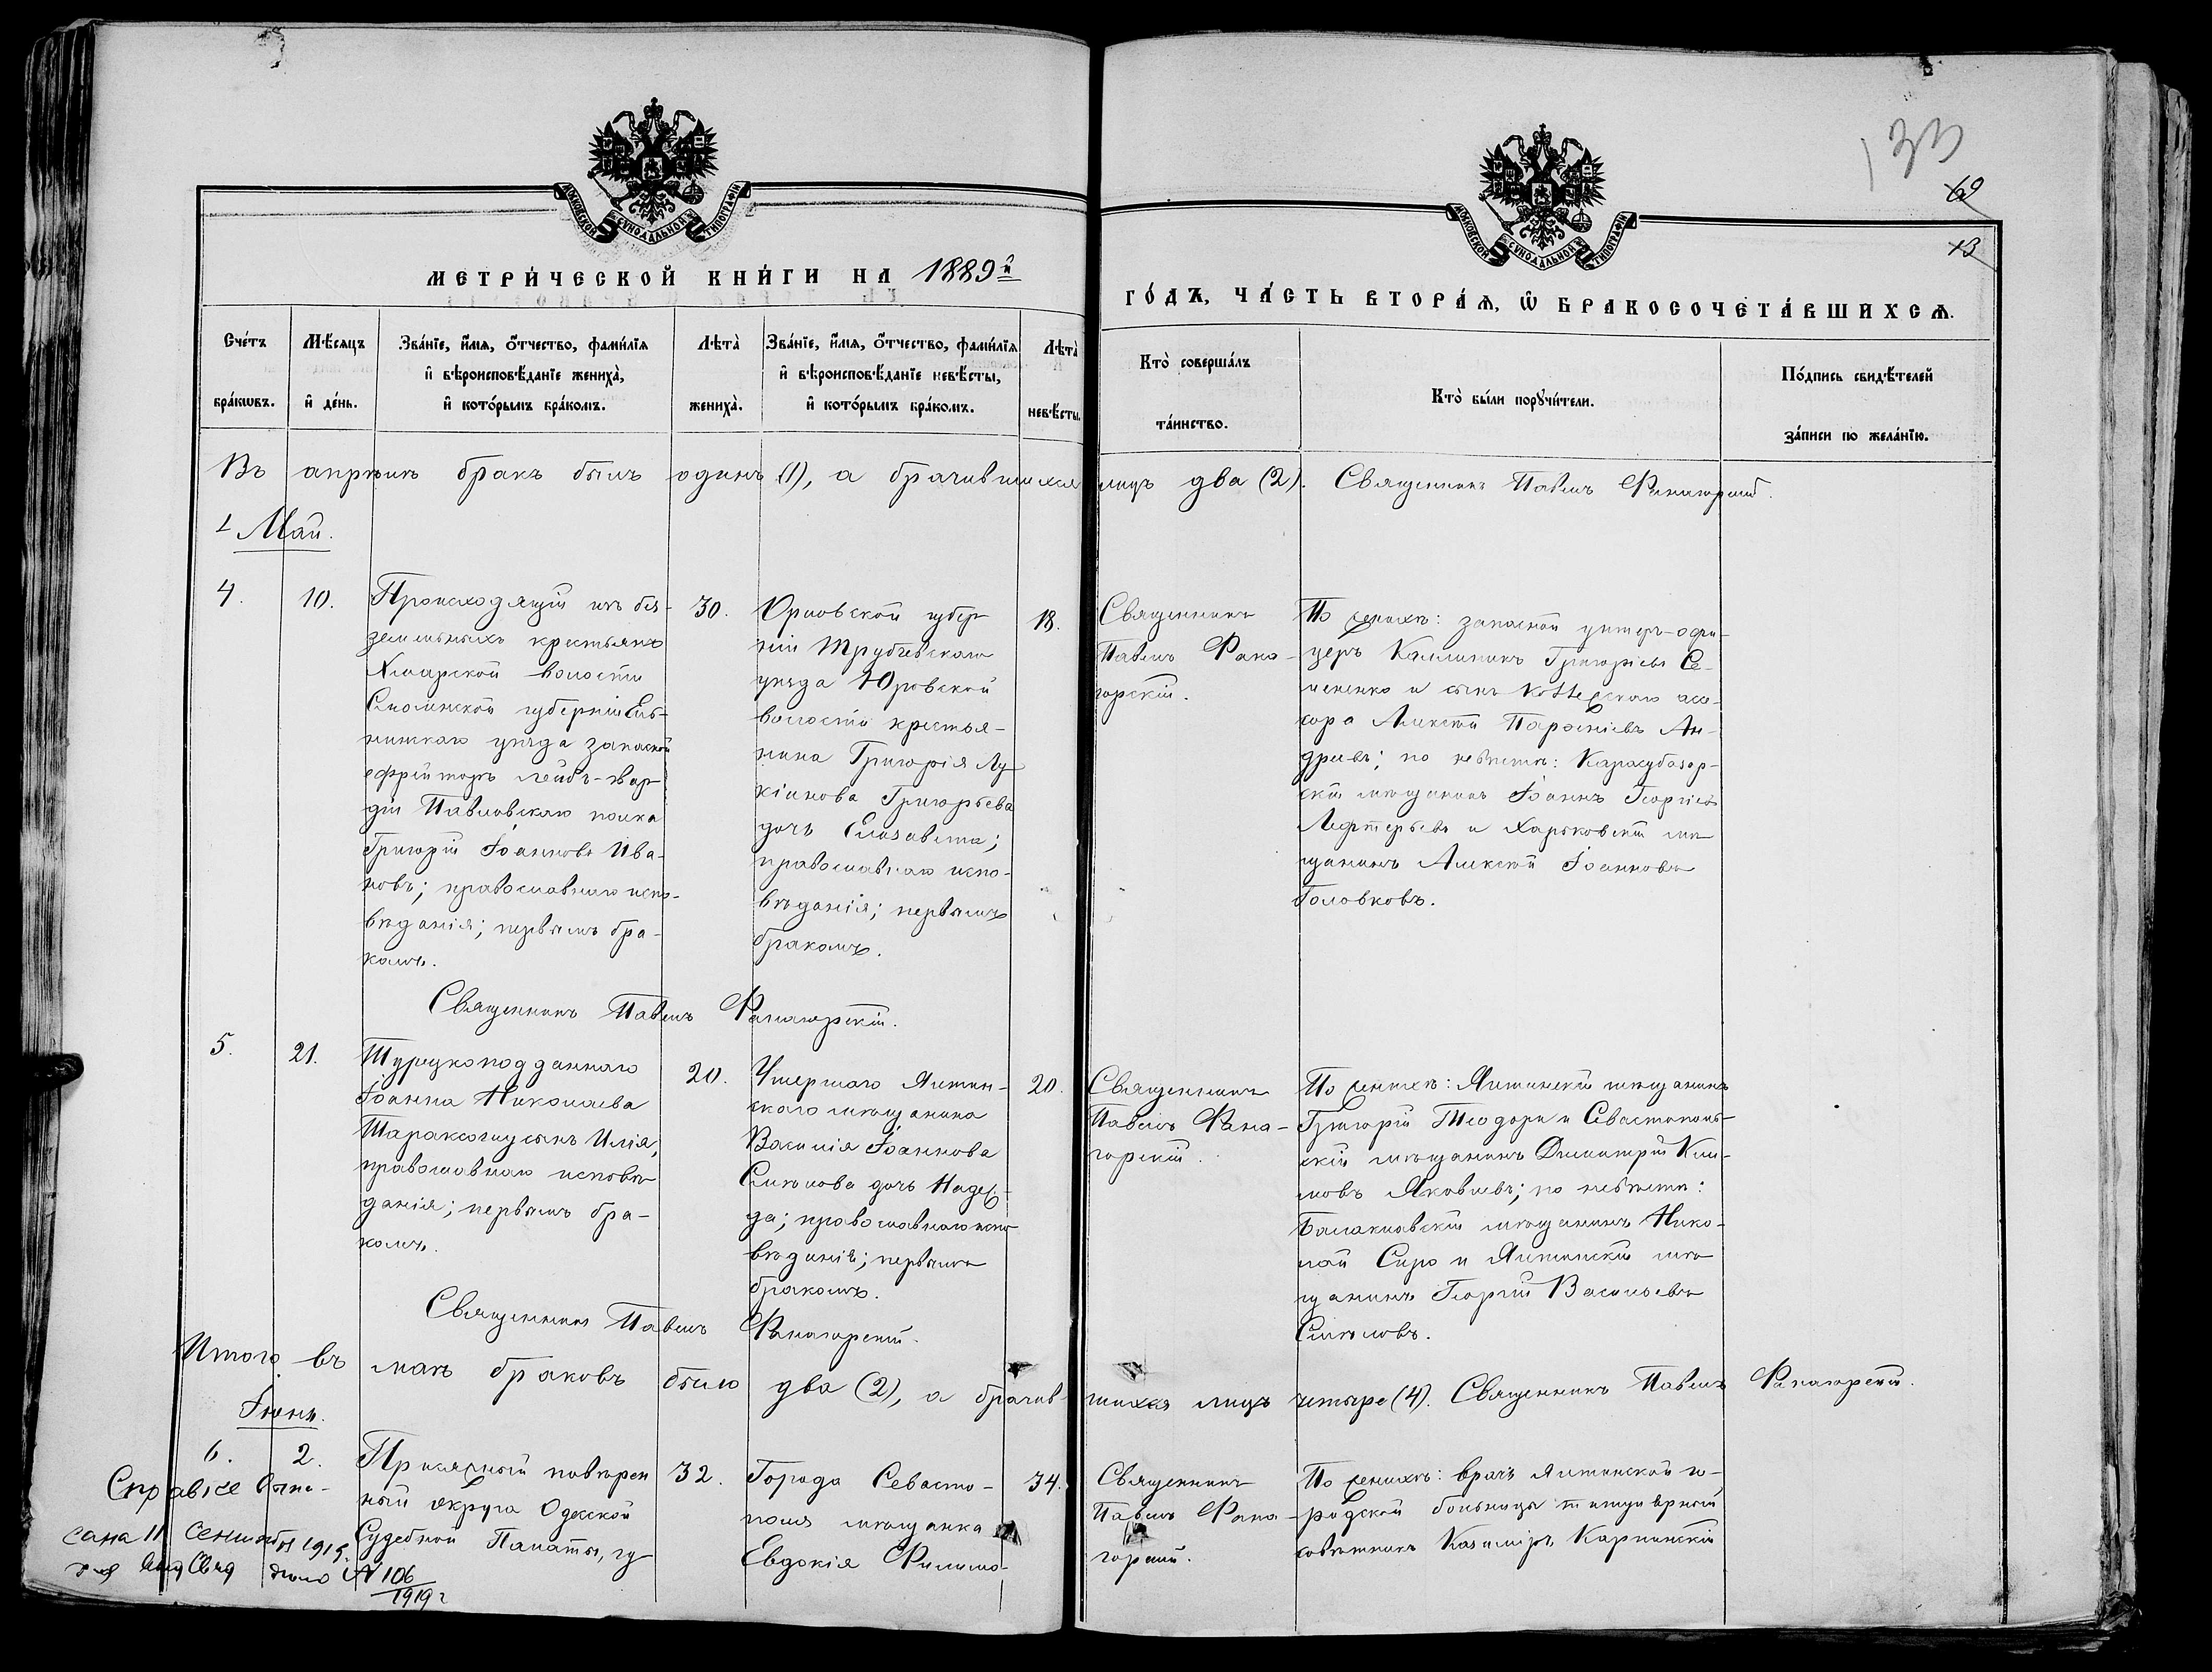 133
69
13
МОСКОВСКОЙ СѴНОДАЛЬНОЙ ТИПОГРАФІИ
МОСКОВСКОЙ СѴНОДАЛЬНОЙ ТИПОГРАФІИ
МЕТРИ́ЧЕСКОЙ КНИ́ГИ НА 1889й
ГО́ДЪ, ЧА́СТЬ ВТОРА́Я, Ѡ БРАКОСОЧЕТА́ВШИХСЯ.
Сче́тъ бра́кѡвъ.
Мѣ́сяцъ и де́нь.
Зва́нїе, и́мя, ѻ́тчество, фами́лїя
и вѣроисповѣ́данїе жениха̀,
и кото́рымъ бра́комъ.
Лѣта̀ жениха̀.
Зва́нїе, и́мя, ѻ́тчество, фами́лїя
и вѣроисповѣ́данїе невѣ́сты,
и кото́рымъ бра́комъ.
Лѣта̀ невѣ́сты.
Кто̀ соверша́лъ
та́инство.
Кто̀ бы́ли порꙋчи́тели.
По́дпись свидѣ́телей
за́писи по жела́нїю.
Въ апрѣлѣ бракъ былъ одинъ (1), а брачившихся лицъ два (2). Священникъ Павелъ Фанагорскій.
Май.
4.
10.
Происходящій изъ без-
земельныхъ крестьянъ
Хмарской волости
Смоленской губерніи Ель-
нинскаго уѣзда запасной
ефрейторъ лейбъ-гвар-
діи Павловскаго полка
Григорій Іоанновъ Ива-
новъ; православнаго испо-
вѣданія; первымъ бра-
комъ.
30.
Орловской губер-
ніи Трубчевскаго
уѣзда Юровской
волости крестья-
нина Григорія Лу-
кіанова Григорьева
дочь Елизавета;
православнаго испо-
вѣданія; первымъ
бракомъ.
18.
Священникъ
Павелъ Фана-
горскій.
По женихѣ: запасной унтеръ-офи-
церъ Каллиникъ Григорьевъ Се-
мененко и сынъ коллежскаго асе-
сора Алексѣй Парфеніевъ Ан-
дреевъ; по невѣстѣ: Карасубазар-
скій мѣщанинъ Іоаннъ Георгіевъ
Лефтерьевъ и Харьковскій мѣ-
щанинъ Алексѣй Іоанновъ
Головковъ.
Священникъ Павелъ Фанагорскій.
5.
21.
Турецкоподданнаго
Іоанна Николаева
сынъ Илія,
православнаго исповѣ-
данія; первымъ бра-
комъ.
20.
Умершаго Ялтин-
скаго мѣщанина
Василія Іоаннова
Смѣлова дочь Надеж-
да; православнаго испо-
вѣданія; первымъ
бракомъ.
20.
Священникъ
Павелъ Фана-
горскій.
По женихѣ: Ялтинскій мѣщанинъ
Григорій Теодори и Севастополь-
скій мѣщанинъ Димитрій Кли-
мовъ Яковлевъ; по невѣстѣ:
Балаклавскій мѣщанинъ Нико-
лай Спиро и Ялтинскій мѣ-
щанинъ Георгій Васильевъ
Смѣловъ.
Священникъ Павелъ Фанагорскій.
Итого въ маѣ браковъ было два (2), а брачив-шихся лицъ четыре (4). Священникъ Павелъ Фанагорскій.
Іюнь.
6.
2.
Присяжный повѣрен
ный округа Одесской
Судебной Палаты, гу-
32.
Города Севасто-
поля мѣщанка
Евдокія Филимо-
34.
Священникъ
Павелъ Фана-
горскій.
По женихѣ: врачъ Ялтинской го-
родской больницы титулярный
совѣтникъ Казиміръ Карпинскій
Справка выпи-
сана 11 Сентября 1919
дѣло № 106
1919 г